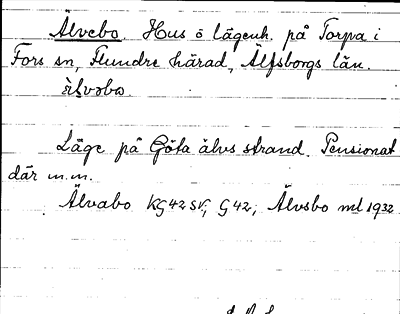 Älvebo. Hus o lägenh. på Torpa i
Fors sn, Flundre härad, Älfsborgs län.
Läge på Göta älvs strand. Pensionat
där m.m.
Älvabo KG42SV, G42, Älvsbo ml 1932